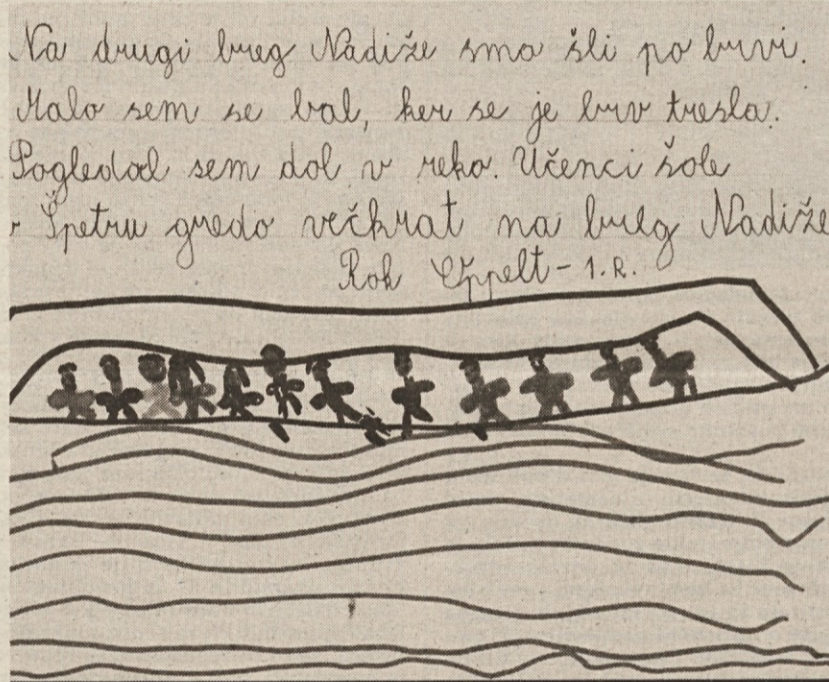 Na drugi breg Nadiže smo šli po brvi.
Malo sem se bal, ker se je brv tresla.
Pogledal sem dol v reko. Učenci šole
v Špetru gredo večkrat na breg Nadiže
Rok Uppelt - 1. R.